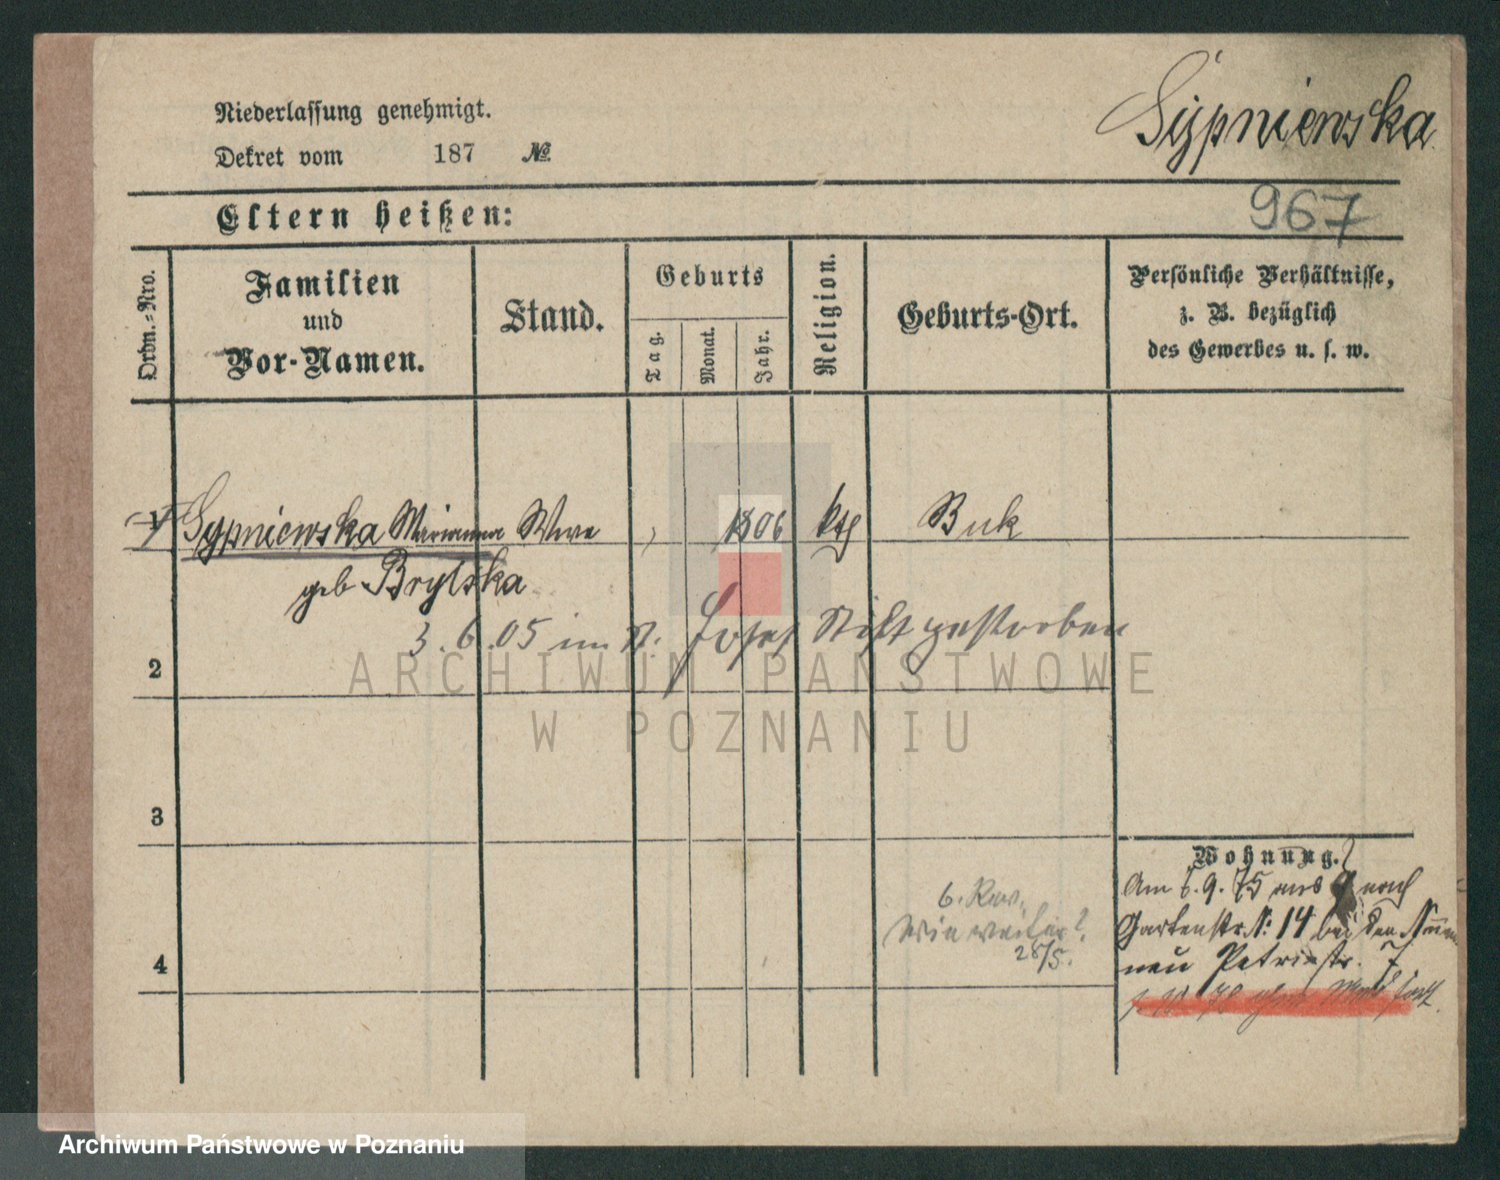 Sypniewska
Niederlassung genehmigt.
Dekret vom 187 №
967
Eltern heißen:
Ordn.-Nro.
Familien
und
Vor-Namen.
Stand.
Geburts
Tag.
Monat.
Jahr.
Religion.
Geburts-Ort.
Persönliche Verhältnisse,
z. B. bezüglich
des Gewerbes u. s. w.
1 Sypniewska Marianna Wwe 1806 kth Buk
geb Brylska
3.6.05 im St. Josef Stift gestorben
2
ARCHIWUM PAŃSTWOWE
W POZNANIU
3
Wohnung.
Am 5.9.75 aus nach
Gartenstr. N: 14 bei den
neu Petristr. 7
6. Rev.
28/5.
4
Archiwum Państwowe w Poznaniu